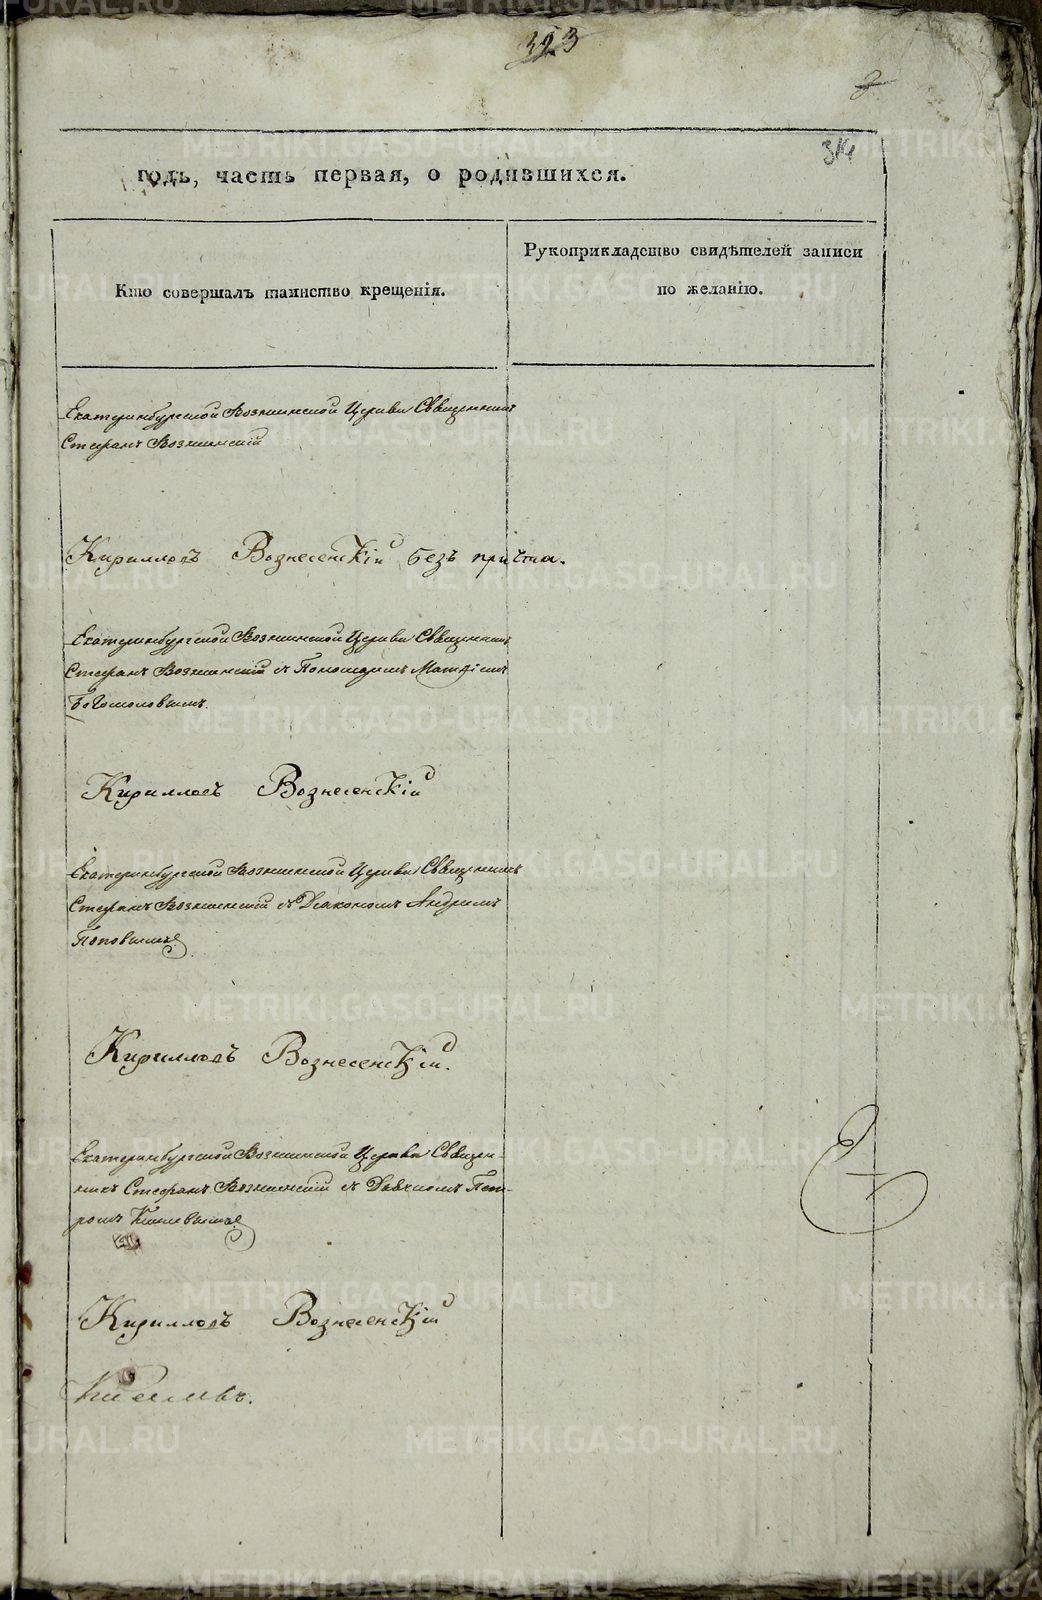 323
314
годъ, часть первая, о родившихся.
Кто совершалъ таинство крещенія.
Рукоприкладство свидѣтелей записи
по желанію.
Екатеринбургской Вознесенской Церкви Священникъ
Стефанъ Вознесенскій
Вознесенскій безъ причта.
Екатеринбургской Вознесенской Церкви Священникъ
Стефанъ Вознесенскій съ Пономаремъ
Богомоловымъ.
Вознесенскій
Екатеринбургской Вознесенской Церкви Священникъ
Стефанъ Вознесенскій съ Діакономъ Андреемъ
Поповымъ
Вознесенскій.
Екатеринбургской Вознесенской Церкви Священ-
никъ Стефанъ Вознесенскій съ Дьячкомъ Пет-
ромъ
Вознесенскій
METRIKI.GASO-URAL.RU